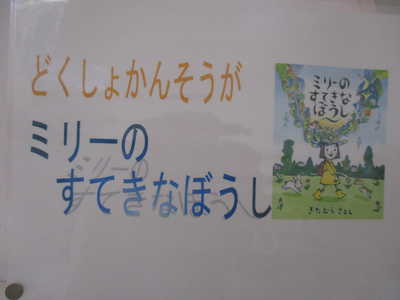 どくしょかんそうが
ミリーの
すてきなぼうし
ミリーの
すてきな
ぼうし
きたむらさとし